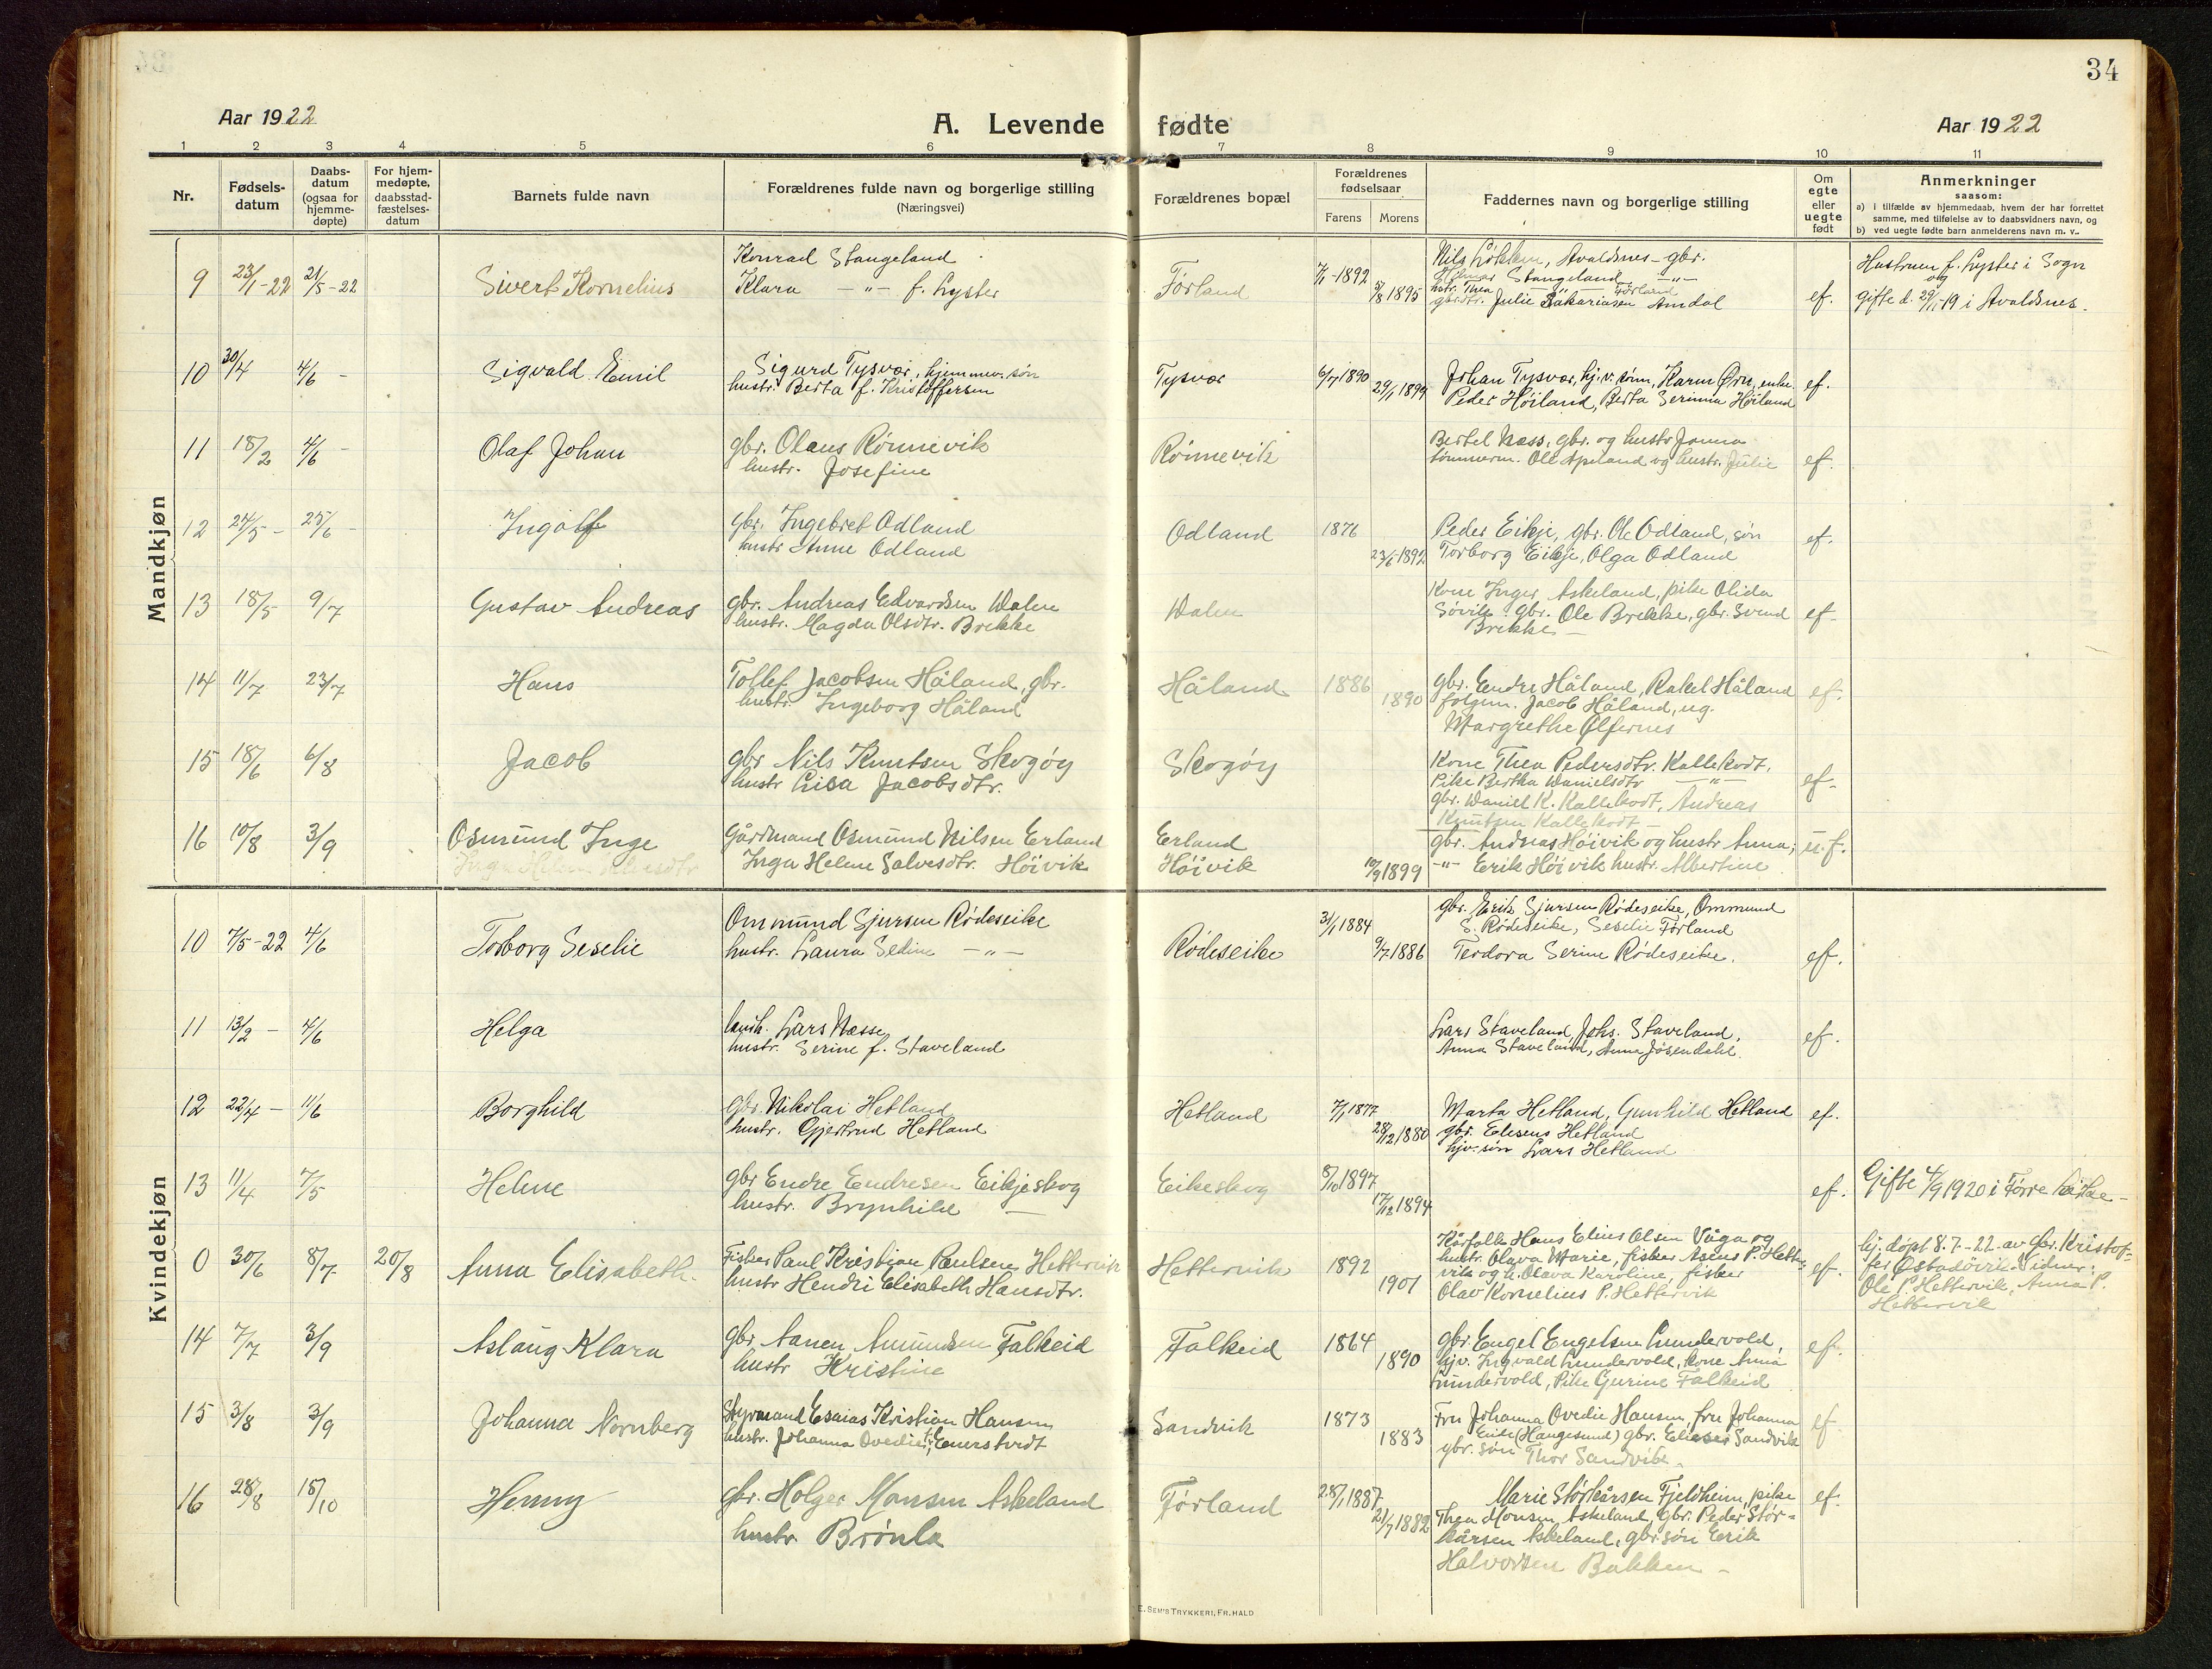 34
Aar 1922
A. Levende fødte
Aar 1922
1 2 3 4 5 6 7 8 9 10 11
Nr.
Fødsels-
datum
Daabs-
datum
(ogsaa for
hjemme-
døpte)
For hjem-
medøpte,
daabsstad-
fæstelses-
datum
Barnets fulde navn
Forældrenes fulde navn og borgerlige stilling
(Næringsvei)
Forældrenes bopæl
Forældrenes
fødselsaar
Farens Morens
Faddernes navn og borgerlige stilling
Om
egte
eller
uegte
født
Anmerkninger
saasom:
a) i tilfælde av hjemmedaab, hvem der har forrettet
samme, med tilføielse av to daabsvidners navn, og
b) ved uegte fødte barn anmelderens navn m. v..
Mandkjøn
9 23/1-22 21/5-22 Sivert Kornelius
Konrad Stangeland
Klara -"- f. Lyster
Førland 7/1-1892 5/8 1895
Nils Løkken, Avaldsnes - gbr.
Hilmar Stangeland -"-
hstr. Thea -"- Førland
gbrdtr. Julie Sakariasen Amdal
ef.
Hustruen f. Lyster i Sogn
og
Gifte d. 29/11-19 i Avaldsnes.
10 30/4 4/6 - Sigvald Emil
Sigurd Tysvær, hjemmev. søn
hustr. Berta f. Kristoffersen
Tysvær 6/7 1890 29/1 1894
Johan Tysvær, hj.v. sønn, Karen Ørn, enke
Peder Høiland, Berta Serinna Høiland
ef.
11 18/2 4/6 - Olaf Johan
gbr. Olaus Rønnevik
hustr. Josefine
Rønnevik
Bertel Næss, gbr. og hustr Janna
tømmerm. Ole Apeland og hustr. Julie
ef.
12 24/5 - 25/6 - Ingolf
gbr. Ingebret Odland
hustr Anne Odland
Odland 1876 23/6-1892
Peder Eikje, gbr. Ole Odland, søn
Torborg Eikje, Olga Odland
ef.
13 18/5 9/7 Gustav Andreas
gbr. Andreas Edvardsen Walen
hustr. Magda Olsdtr. Brekke
Walen
Kone Inger Askeland, pike Olida
Søvik gbr. Ole Brekke, gbr. Svend
Brekke -
ef.
14 11/7 23/7 Hans
Tollef Jacobsen Håland, gbr.
hustr. Ingeborg Håland
Håland 1886 1890
gbr. Endre Håland, Rakel Håland
følgm. Jacob Håland, ug.
Margrethe Ølfernes
ef.
15 18/6 6/8 Jacob
gbr Nils Knutsen Skogøy
hustr Lisa Jacobsdtr.
Skogøy
Kone Thea Pedersdtr. Kallekodt,
Pike Bertha Danielsdtr -"-
gbr. Daniel K. Kallekodt, Andreas
Knutsen Kallekodt -
ef.
16 10/8 3/9 Osmund Inge
Gårdmand Osmund Nilsen Erland
Inga Helene Salvesdtr. Høivik
Erland
Høivik
10/9 1899
gbr. Andreas Høivik og hustr Anna,
-"- Erik Høivik hustr. Albertine
u.f.
Kvindekjøn
10 7/5-22 4/6 Torborg Seselie
Ommund Sjursen Rødeseike
hustr. Laura Sedine -"-
Rødeseike 31/1 1884 9/7 1886
gbr. Erik Sjursen Rødeseike, Ommund
S. Rødeseike, Seselie Førland
Teodora Serine Rødeseike.
ef.
11 13/2 - 4/6 Helga
Lars Næsse
hustr. Serine f. Staveland
Lars Staveland, Johs. Staveland,
Anna Staveland, Anna Jøsendahl.
ef.
12 22/4 - 11/6 Borghild
gbr. Nikolai Hetland
hustr. Gjertrud Hetland
Hetland 7/1 1877 28/12 1880
Marta Hetland, Gunhild Hetland
gbr. Elesens Hetland
hjv. søn Lars Hetland
ef.
13 11/4 7/5 Helene
gbr Endre Endresen Eikjeskog
hustr. Brynhild -
Eikeskog 8/10 1897 17/12 1894
ef.
Gifte 4/9 1920 i Førre kirke -
0 30/6 8/7 20/8 Anna Elisabeth.
Fisker Paul Kristian Paulsen Hettervik
hustr Hendri Elisabeth Hansdtr.
Hettervik 1892 1901
Kårfolk Hans Elius Olsen Våga og
hustr. Olava Marie, fisker Asens P. Hetter-
vik og h. Olava Karoline, fisker
Olav Kornelius P. Hettervik
ef.
hj. døpt 8.7-22 av gbr. Kristof-
fer Østabøvik. Vidner:
Ole P. Hettervik, Anna P.
Hettervik
14 7/7 3/9 Aslaug Klara
gbr Aanen Amundsen Falkeid
hustr Kristine
Falkeid 1864 1890
gbr. Engel Engelsen Lundervold,
hjv. Ingvald Lundervold, kone Anna
Lundervold, Pike Gurine Falkeid
ef.
15 3/8 3/9 Johanna Nornberg
Styrmand Esaias Kristian Hansen
hustr. Johanna Ovedie
Sandvik 1873 1883
Fru Johanna Ovedie Hansen, fru Johanna
(Haugesund) gbr. Elieser Sandvik
gbr. søn Thor Sandvik -
ef
16 28/8 15/10 Henny
gbr. Holger Monsen Askeland
hustr Brønla
Førland 28/1 1887 21/7 1882
Marie Størkårsen Fjeldheim, pike
Thea Monsen Askeland, gbr. Peder Stør-
kårsen Askeland, gbr søn Erik
Halvorsen Bakken -
ef.
E. Sem's Trykkeri, Fr. Hald